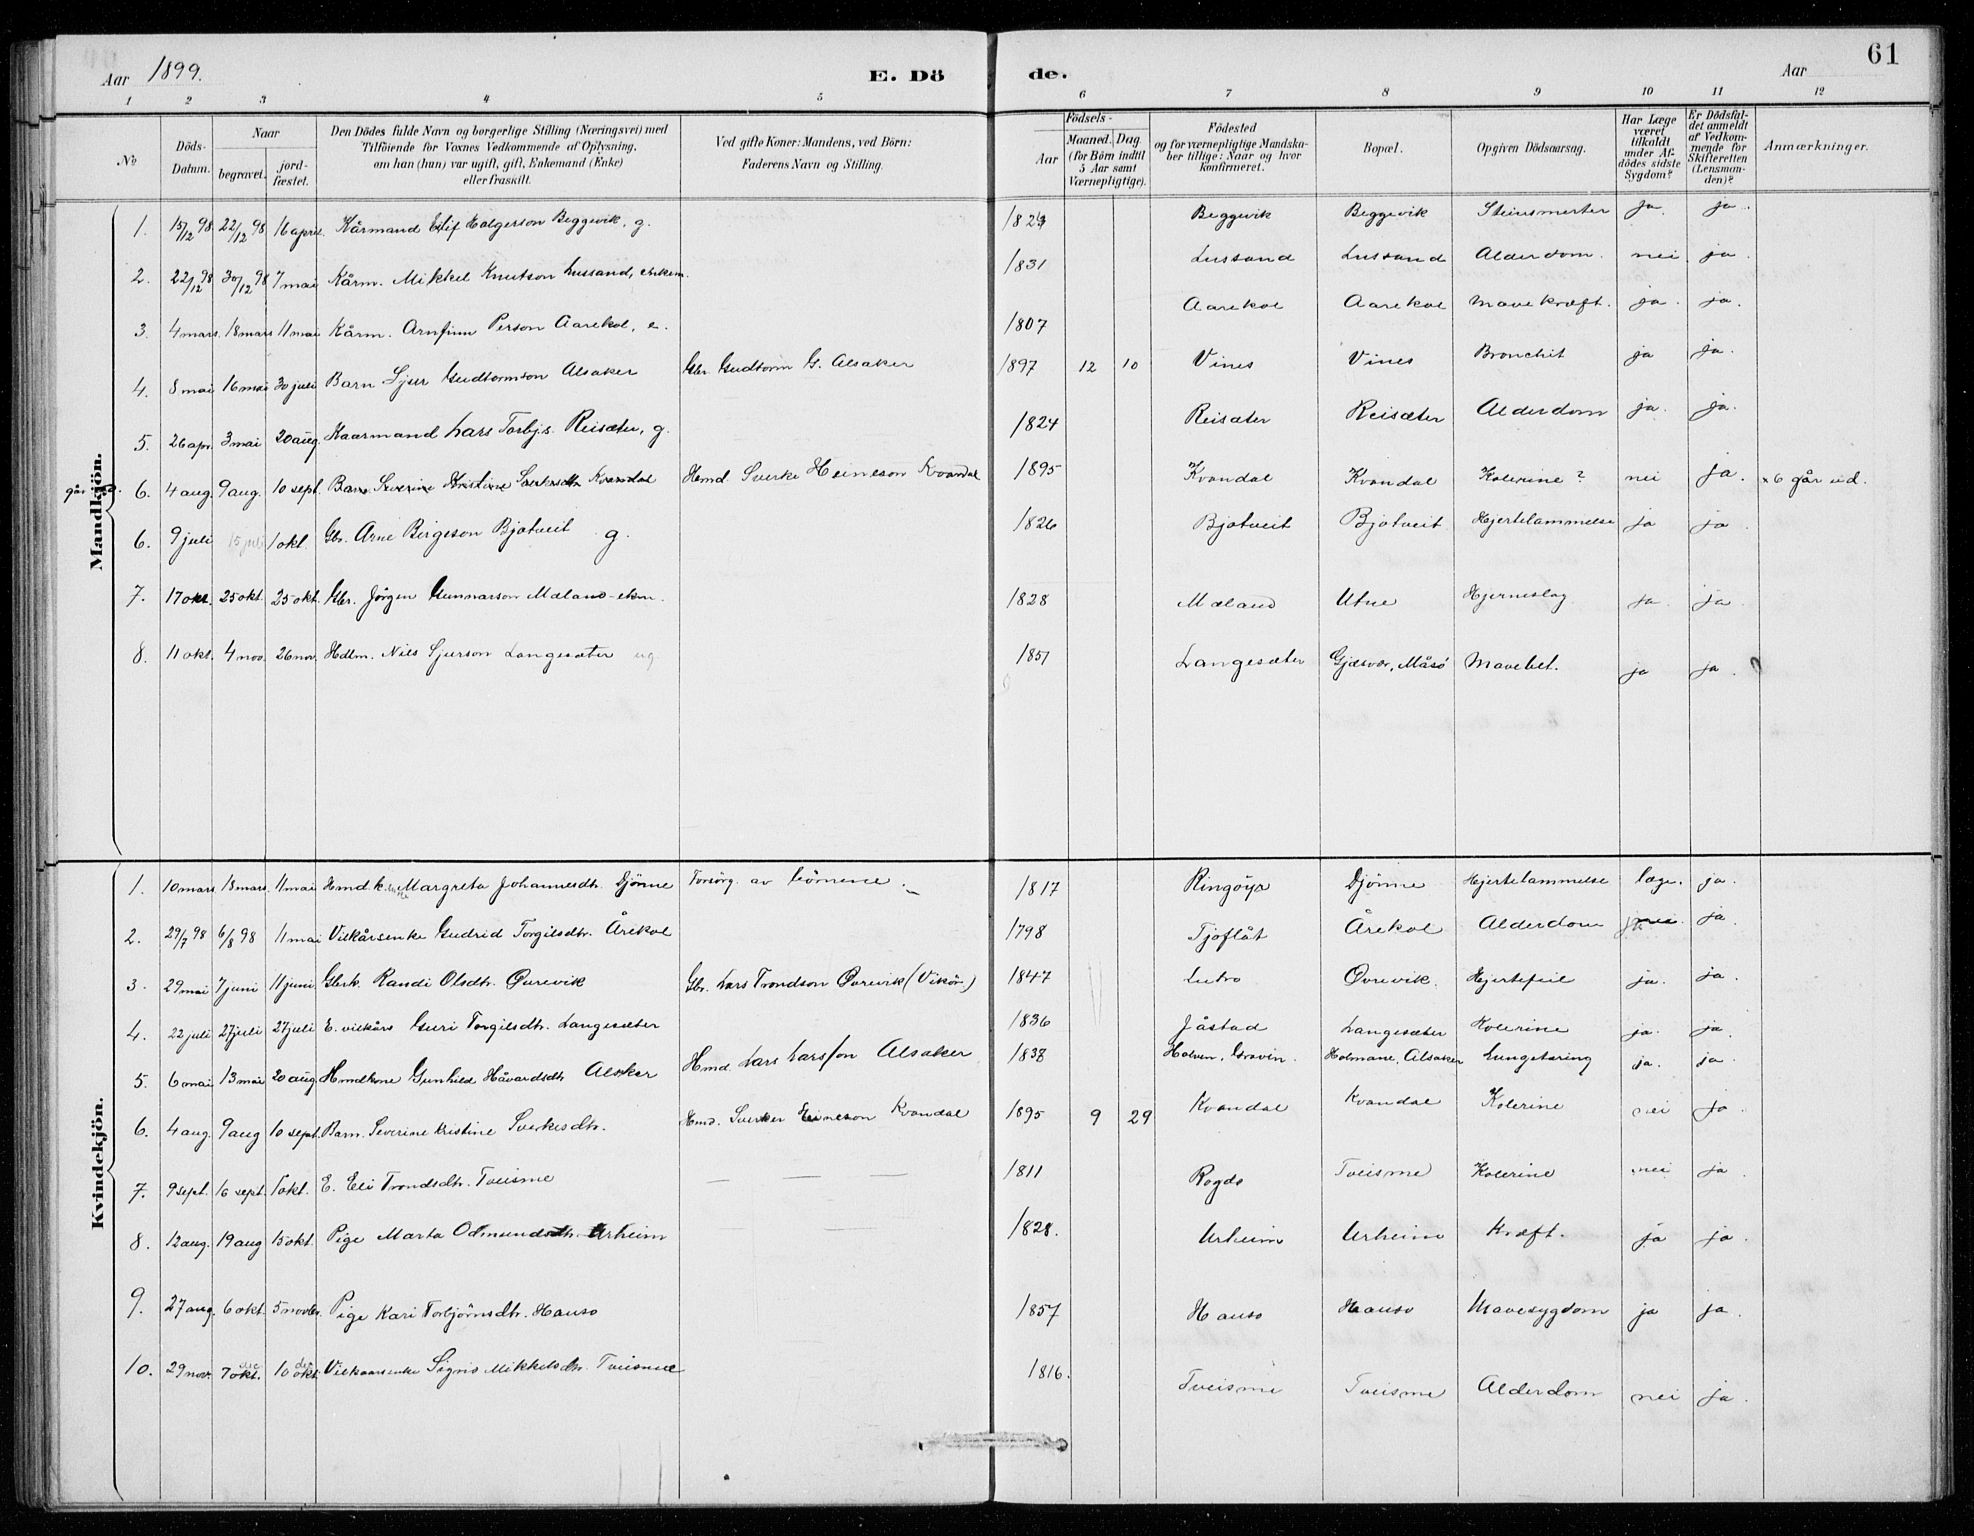 Aar 1899. E. Döde. Aar 61
1 2 3 4 5 6 7 8 9 10 11 12
No
Döds-Datum.
Naar begravet. jordfæstet.
Den Dödes fulde Navn og borgerlige Stilling (Næringsvei) med Tilföiende for Voxnes Vedkommende af Oplysning, om han (hun) var ugift, gift, Enkemand (Enke) eller fraskilt.
Ved gifte Koner: Mandens, ved Börn: Faderens Navn og Stilling.
Födsels- Aar Maaned. Dag (for Börn indtil 5 Aar samt Værnepligtige).
Födested og for værnepligtige Mandskaber tillige: Naar og hvor konfirmeret.
Bopæl.
Opgiven Dödsaarsag.
Har Læge været tilkaldt under Afdödes sidste Sygdom?
Er Dödsfaldet anmeldt af Vedkommende for Skifteretten (Lensmanden)?
Anmærkninger.
Mandkjön.
1. 15/12 98 22/12 98 16 april. Kårmand Eilif Holgerson Beggevik, g. 1824 Beggevik Beggevik Steinsmerter ja ja.
2. 22/12 98 30/12 98 7 mai Kårm. Mikkel Knutson Lussand, enkem. 1831 Lussand Lussand Alderdom. nei ja.
3. 4 mars. 18 mars 11 mai Kårm. Arnfinn Person Aarekol, e. 1807 Aarekol Aarekol Mavekræft. ja. ja.
4. 8 mai 16 mai 30 juli Barn Sjur Gudtormson Alsaker Gbr. Gudtorm G. Alsaker 1897 12 10 Vines Vines Bronchit ja ja.
5. 26 apr. 3 mai 20 aug. Kaarmand Lars Torbjs. Reisæter, g. 1824 Reisæter Reisæter Alderdom ja. ja.
går ud. 6. 4 aug. 9 aug. 10 sept. Barn Severine Kristine Sverkesdtr. Kvandal Hmd Sverke Heineson Kvandal 1895 Kvandal Kvandal Kolerine? nei ja. × 6 går ud.
6. 9 juli 15 juli 1 okt. Gbr. Arne Birgeson Bjotveit g. 1826 Bjotveit Bjotveit Hjertelammelse ja ja
7. 17 okt. 25 okt. 25 okt. Gbr. Jörgen Gunnarson Mæland - ekm. 1828 Mæland Utne Hjerneslag ja. ja.
8. 11 okt. 4 nov. 26 nov. Hdlm. Nils Sjurson Langesæter ug. 1851 Langesæter Gjæsvær, Måsö Mavebet. ja ja.
Kvindekjön.
1. 10 mars 18 mars. 11 mai Hmd.k. Margreta Johannesdtr. Djönne Forsörg. av börnene. 1817 Ringöya Djönne Hjertelammelse læge. ja.
2. 29/7 98 6/8 98 11 mai Vilkårsenke Gudrid Torgilsdtr. Årekol 1798 Tjoflåt Årekol Alderdom nei. ja
3. 29 mai 7 juni 11 juni Gbrk. Randi Olsdtr. Övrevik Gbr. Lars Trondson Övrevik (Vikör) 1847 Lutro Övrevik. Hjertefeil ja. ja.
4. 22 juli 27 juli 27 juli E. vilkårs Guri Torgilsdtr. Langesæter 1836 Jåstad Langesæter Kolerine ja. ja.
5. 6 mai 13 mai 20 aug Hmdkone Gunhild Håvardsdtr Alsker Hmd. Lars Larsson Alsaker 1838 Holven, Gravin. Holmane, Alsaker Lungetæring ja. ja.
6. 4 aug. 9 aug 10 sept. Barn. Severine Kristine Sverkesdtr. Hmd. Sverker Heineson Kvandal 1895 9 29 Kvandal Kvandal Kolerine nei ja.
7. 9 sept. 16 sept. 1 okt. E. Eli Trondsdtr. Tveisme — — — 1811 Rogde Tveisme Kolerine nei ja.
8. 12 aug. 19 aug 15 okt. Pige Marta Odmundsdtr. Urheim — — — 1828. Urheim Urheim Kræft. ja ja.
9. 27 aug. 6 okt. 5 novbr. Pige Kari Torbjörnsdtr. Hauso 1857 Hauso Hauso Mavesygdom ja ja.
10. 29 nov. 7 okt. dec 10 okt. dec Vilkaarsenke Sigris Mikkelsdtr. Tveisme 1816. Tveisme Tveisme Alderdom nei ja.